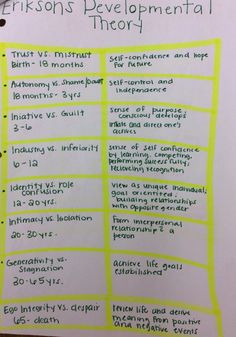 Eriksons Developmental
Theory
Trust vs. mistrust
Birth - 18 months
Self-confidence and hope
for future
Autonomy vs. Shame/Doubt
18 months - 3yrs
Self-control and
independence
Iniative vs. Guilt
3-6
sense of purpose,
conscious develops
initiate and direct one's
activities
Industry vs. Inferiority
6-12
sense of self confidence
by learning, competing,
performing successfully,
receiving recognition
Identity vs. role
confusion
12-20yrs.
View as unique individual,
goal orientated
building relationships
with opposite gender
Intimacy vs. Isolation
20-30yrs.
Form interpersonal
relationship a
person
Generativity vs.
Stagnation
30-65yrs.
achieve life goals
established
Ego Integrity vs. despair
65- death
review life and derive
meaning from positive
and negative events